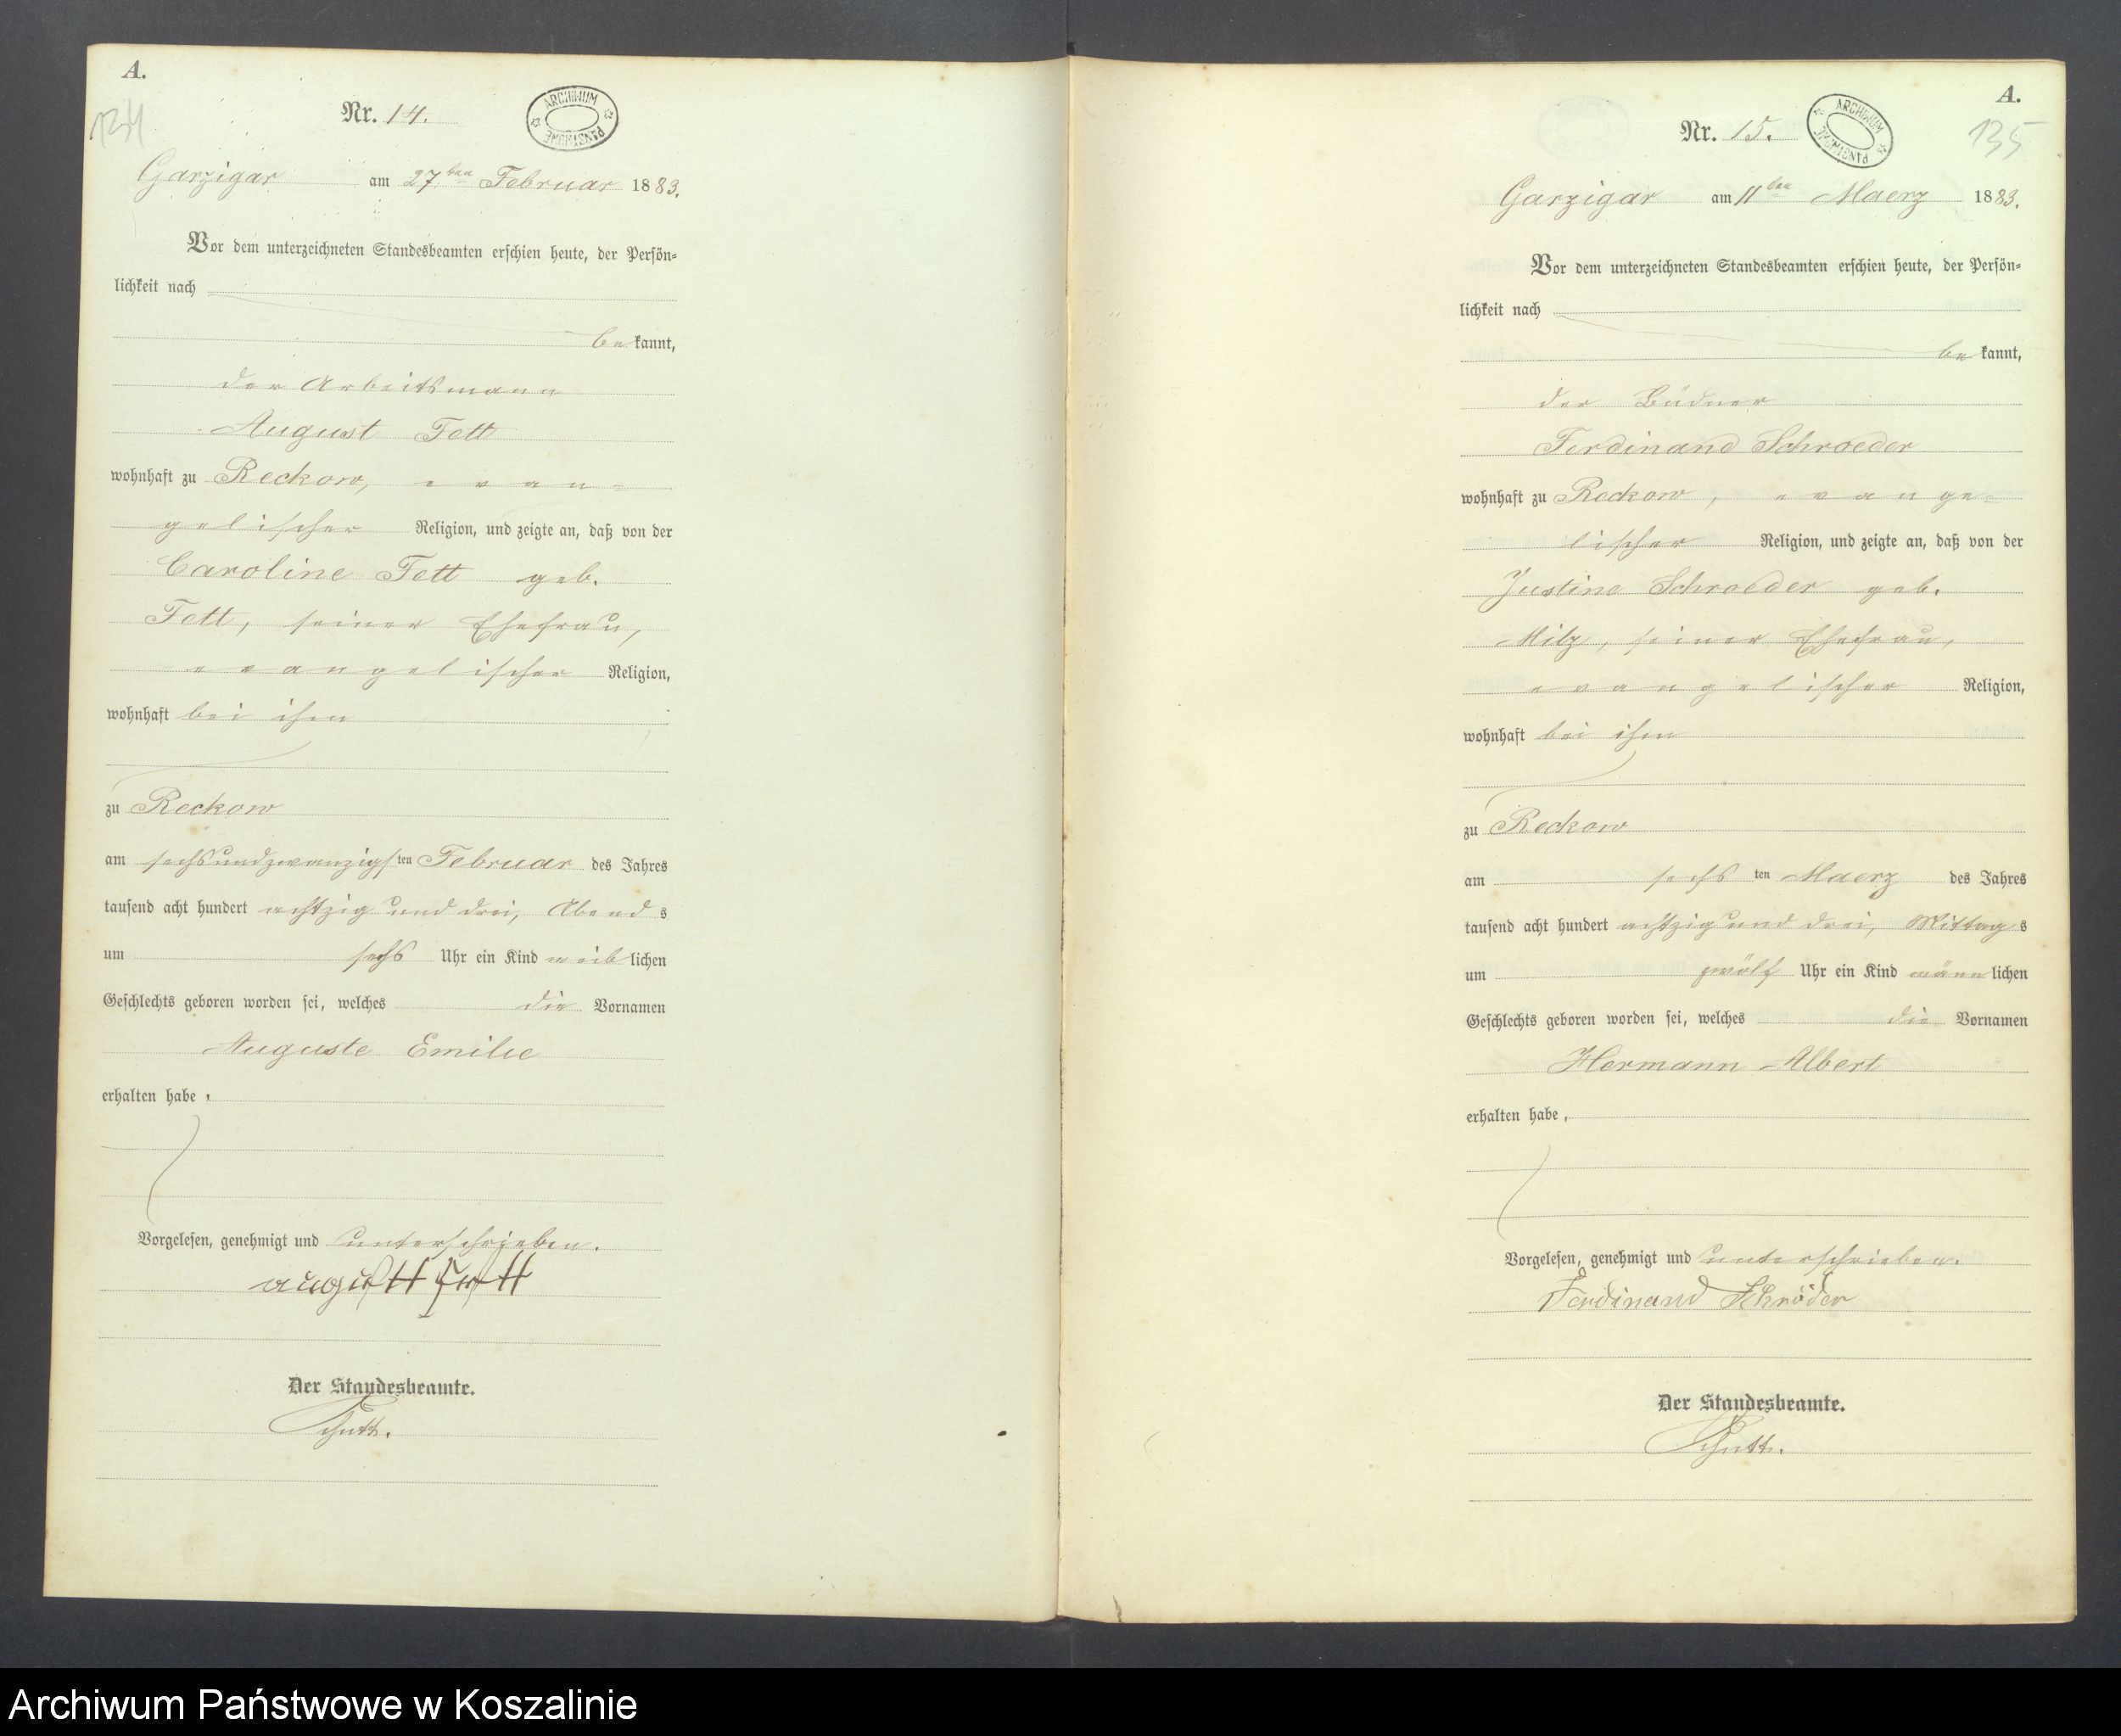 A.
134
Nr. 14.
ARCHIWUM PAŃSTWOWE
Garzigar am 27ten Februar 1883.
Vor dem unterzeichneten Standesbeamten erschien heute, der Persön=
lichkeit nach
be kannt,
der Arbeitsmann
August Fett
wohnhaft zu Reckow, evan=
gelischer Religion, und zeigte an, daß von der
Caroline Fett geb.
Fett, seiner Ehefrau,
evangelischer Religion,
wohnhaft bei ihm
zu Reckow
am sechsundzwanzigsten Februar des Jahres
tausend acht hundert achtzig und drei, Abends
um sechs Uhr ein Kind weiblichen
Geschlechts geboren worden sei, welches die Vornamen
Auguste Emilie
erhalten habe.
Vorgelesen, genehmigt und unterschrieben.
august Fett
Der Standesbeamte.
A.
135
Nr. 15.
ARCHIWUM PAŃSTWOWE
Garzigar am 11ten Maerz 1883.
Vor dem unterzeichneten Standesbeamten erschien heute, der Persön=
lichkeit nach
be kannt,
der Büdner
Ferdinand Schroeder
wohnhaft zu Reckow, evange=
lischer Religion, und zeigte an, daß von der
Justine Schroeder geb.
Milz, seiner Ehefrau,
evangelischer Religion,
wohnhaft bei ihm
zu Reckow
am sechsten Maerz des Jahres
tausend acht hundert achtzig und drei, Mittags
um zwölf Uhr ein Kind männlichen
Geschlechts geboren worden sei, welches die Vornamen
Hermann Albert
erhalten habe,
Vorgelesen, genehmigt und unterschrieben.
Ferdinand Schröder
Der Standesbeamte.
Archiwum Państwowe w Koszalinie